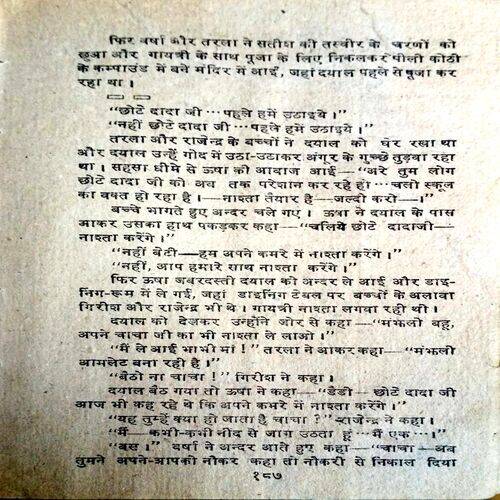 फिर वर्षा और तरला ने सतीश की तस्वीर के चरणों को
छुआ और गायत्री के साथ पूजा के लिए निकलकर पीली कोठी
के कम्पाउंड में बने मंदिर में आई, जहां दयाल पहले से पूजा कर
रहा था।
"छोटे दादा जी ··· पहले हमें उठाइये।"
"नहीं छोटे दादा जी ··· पहले हमें उठाइये।"
तरला और राजेन्द्र के बच्चों ने दयाल को घेर रखा था
और दयाल उन्हें गोद में उठा-उठाकर अंगूर के गुच्छे तुड़वा रहा
था। सहसा धीमे से ऊषा की आवाज आई—"अरे तुम लोग
छोटे दादा जी को अब तक परेशान कर रहे हो ··· चलो स्कूल
का वक्त हो रहा है।—नाश्ता तैयार है—जल्दी करो—।"
बच्चे भागते हुए अन्दर चले गए। ऊषा ने दयाल के पास
आकर उसका हाथ पकड़कर कहा—"चलिये छोटे दादाजी—
नाश्ता करेंगे।"
"नहीं बेटी—हम अपने कमरे में नाश्ता करेंगे।"
"नहीं, आप हमारे साथ नाश्ता करेंगे।"
फिर ऊषा जबरदस्ती दयाल को अन्दर ले आई और डाइ-
निंग-रूम में ले गई, जहां डाइनिंग टेबल पर बच्चों के अलावा
गिरीश और राजेन्द्र भी थे। गायत्री नाश्ता लगवा रही थी।
दयाल को देखकर उन्होंने जोर से कहा—"मंझली बहू,
अपने चाचा जी का भी नाश्ता ले लाओ।"
"मैं ले आई भाभी मां!" तरला ने आकर कहा—"मंझली
आमलेट बना रही है।"
"बैठो ना चाचा!" गिरीश ने कहा।
दयाल बैठ गया तो ऊषा ने कहा—"डैडी—छोटे दादा जी
आज भी कह रहे थे कि अपने कमरे में नाश्ता करेंगे।"
"यह तुम्हें क्या हो जाता है चाचा?" राजेन्द्र ने कहा।
"मैं—कभी-कभी नींद से जाग उठता हूं—मैं एक···।"
"बस।" वर्षा ने अन्दर आते हुए कहा—"चाचा—अब
तुमने अपने-आपको नौकर कहा तो नौकरी से निकाल दिया
१८७